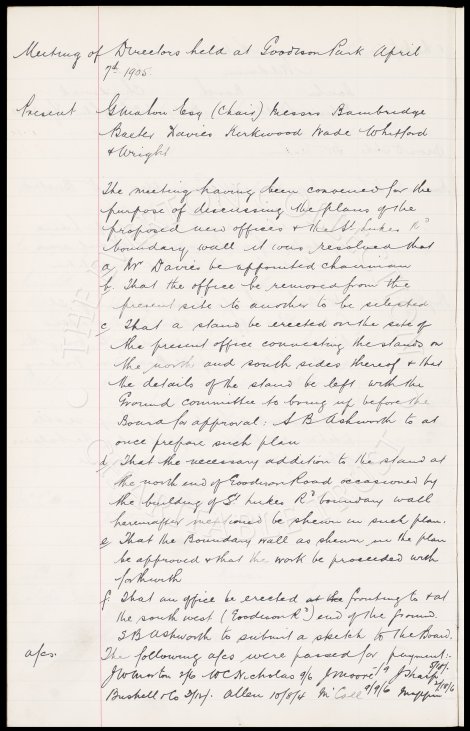 Meeting of Directors held at Goodison Park April
7th 1905
Present Esq (Chair) Messrs Bainbridge
Baxter Davies Kirkwood Wade Whitford
& Wright
The meeting having been convened for the
purpose of discussing the plans of the
proposed new offices & the St. Lukes Rd
boundary wall it was resolved that
a) Mr Davies be appointed chairman
b. That the office be removed from the
present site to another to be selected
c. That a stand be erected on the site of
the present office connecting the stands on
the north and south sides thereof & that
the details of the stand be left with the
Ground committee to bring up before the
Board for approval: B Ashworth to at
once prepare such plan
d. That the necessary addition to the stand at
the north end of Goodison Road occasioned by
the building of St Lukes Rd boundary wall
hereinafter mentioned be shewn in such plan.
e That the Boundary wall as shewn in the plan
be approved & that the work be proceeded with
forthwith
f. That an office be erected at the fronting to & at
the south west (Goodison Rd) end of the ground.
B Ashworth to submit a sketch to the Board.
a/cs. The following a/cs were passed for payment:-
J W Morton 2/6 W C Nicholas 9/6 J Moore J Sharp
Bushell & Co Allen 10/8/4 McCall 9/9/6